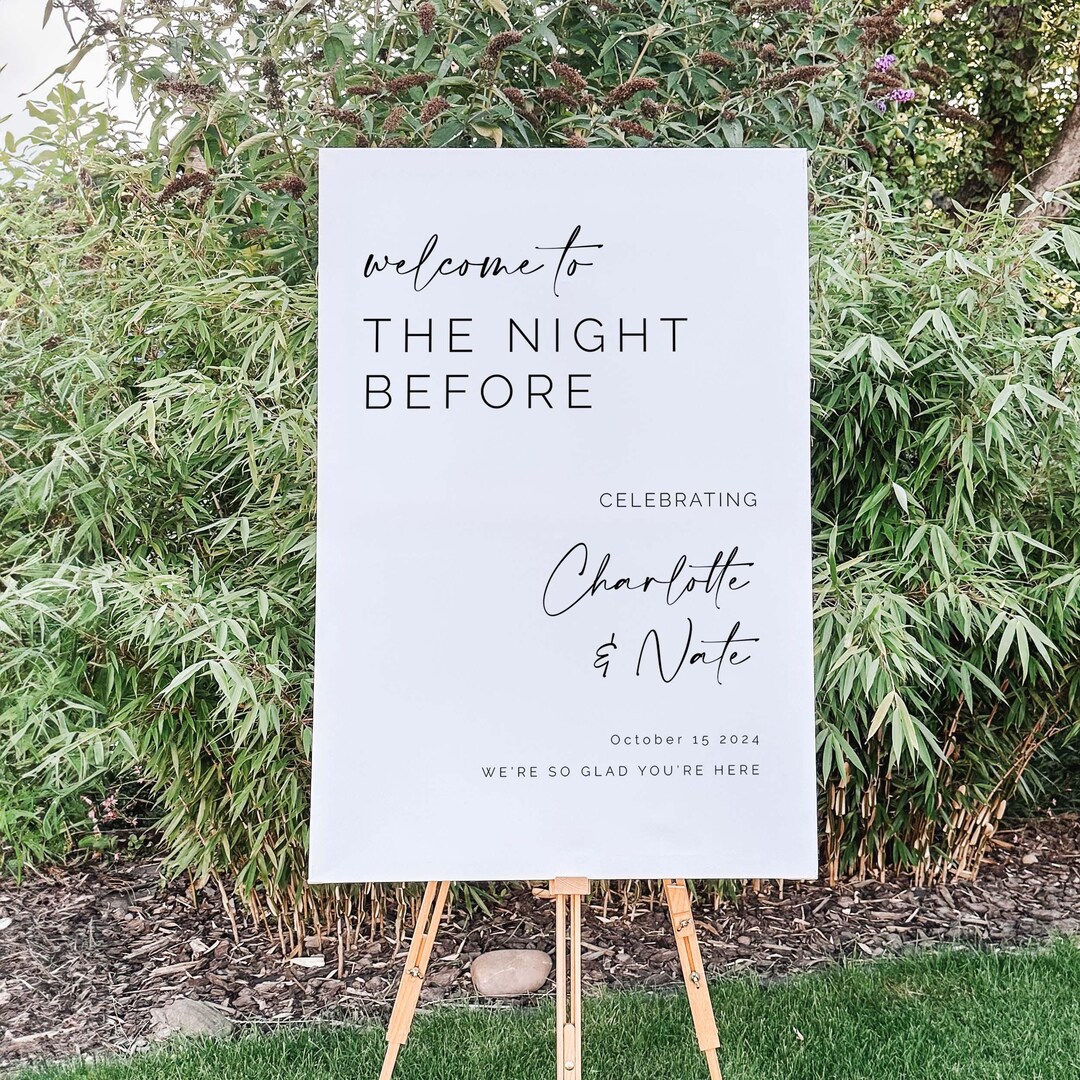 welcome to
THE NIGHT
BEFORE
CELEBRATING
Charlotte
& Nate
October 15 2024
WE'RE SO GLAD YOU'RE HERE